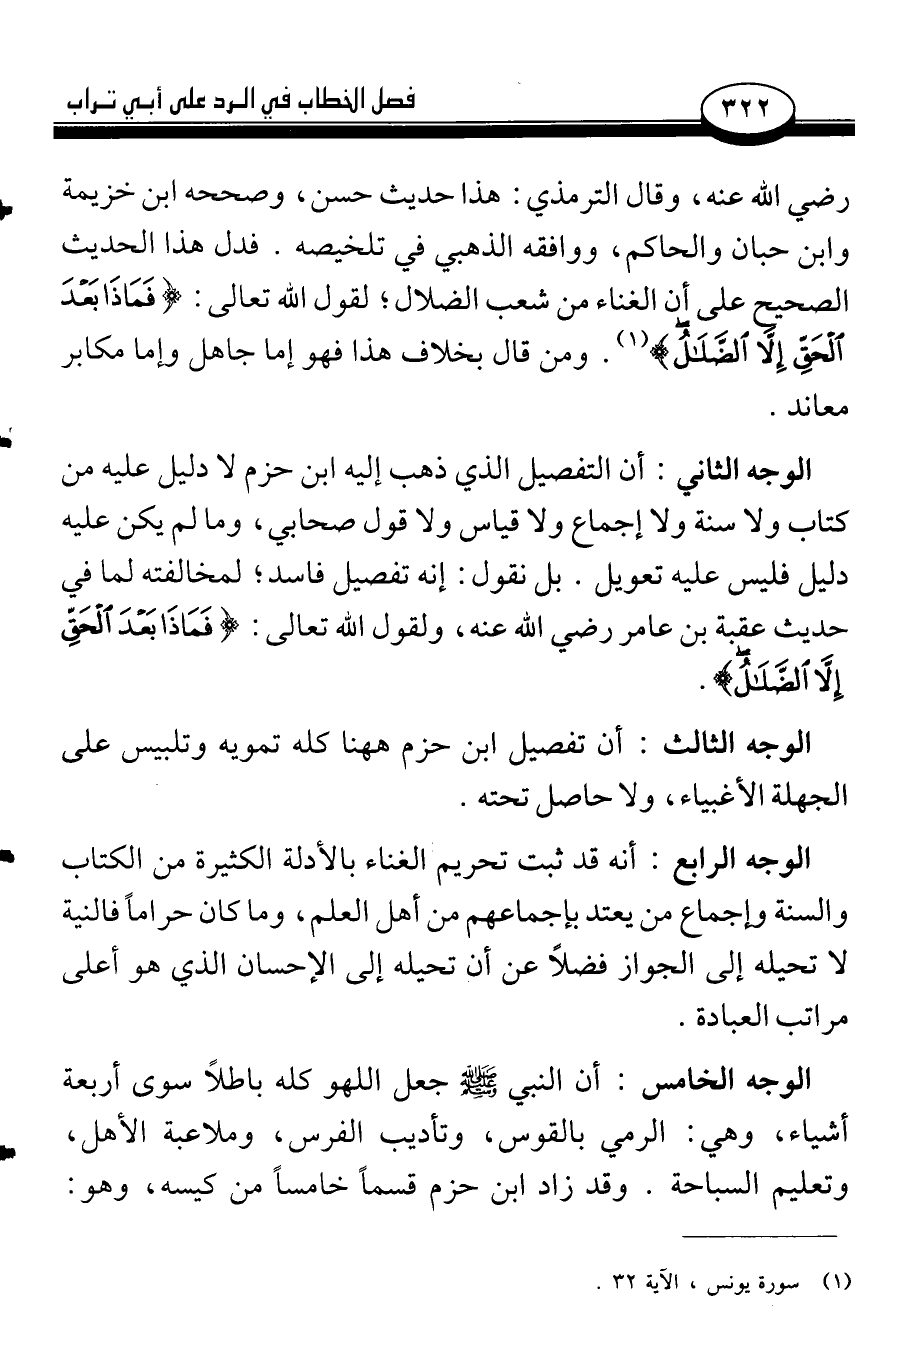 ٣٢٢
فصل الخطاب في الرد على أبي تراب
رضي الله عنه، وقال الترمذي: هذا حديث حسن، وصححه ابن خزيمة
وابن حبان والحاكم، ووافقه الذهبي في تلخيصه . فدل هذا الحديث
الصحيح على أن الغناء من شعب الضلال؛ لقول الله تعالى: ﴿فَمَاذَا بَعْدَ
ٱلْحَقِّ إِلَّا ٱلضَّلَـٰلُۖ﴾(١). ومن قال بخلاف هذا فهو إما جاهل وإما مكابر
معاند .
الوجه الثاني : أن التفصيل الذي ذهب إليه ابن حزم لا دليل عليه من
كتاب ولا سنة ولا إجماع ولا قياس ولا قول صحابي، وما لم يكن عليه
دليل فليس عليه تعويل . بل نقول: إنه تفصيل فاسد؛ لمخالفته لما في
حديث عقبة بن عامر رضي الله عنه، ولقول الله تعالى: ﴿فَمَاذَا بَعْدَ ٱلْحَقِّ
إِلَّا ٱلضَّلَـٰلُۖ﴾ .
الوجه الثالث : أن تفصيل ابن حزم ههنا كله تمويه وتلبيس على
الجهلة الأغبياء، ولا حاصل تحته .
الوجه الرابع : أنه قد ثبت تحريم الغناء بالأدلة الكثيرة من الكتاب
والسنة وإجماع من يعتد بإجماعهم من أهل العلم، وما كان حراماً فالنية
لا تحيله إلى الجواز فضلاً عن أن تحيله إلى الإحسان الذي هو أعلى
مراتب العبادة .
الوجه الخامس : أن النبي ﷺ جعل اللهو كله باطلاً سوى أربعة
أشياء، وهي: الرمي بالقوس، وتأديب الفرس، وملاعبة الأهل،
وتعليم السباحة . وقد زاد ابن حزم قسماً خامساً من كيسه، وهو:
(١) سورة يونس ، الآية ٣٢ .